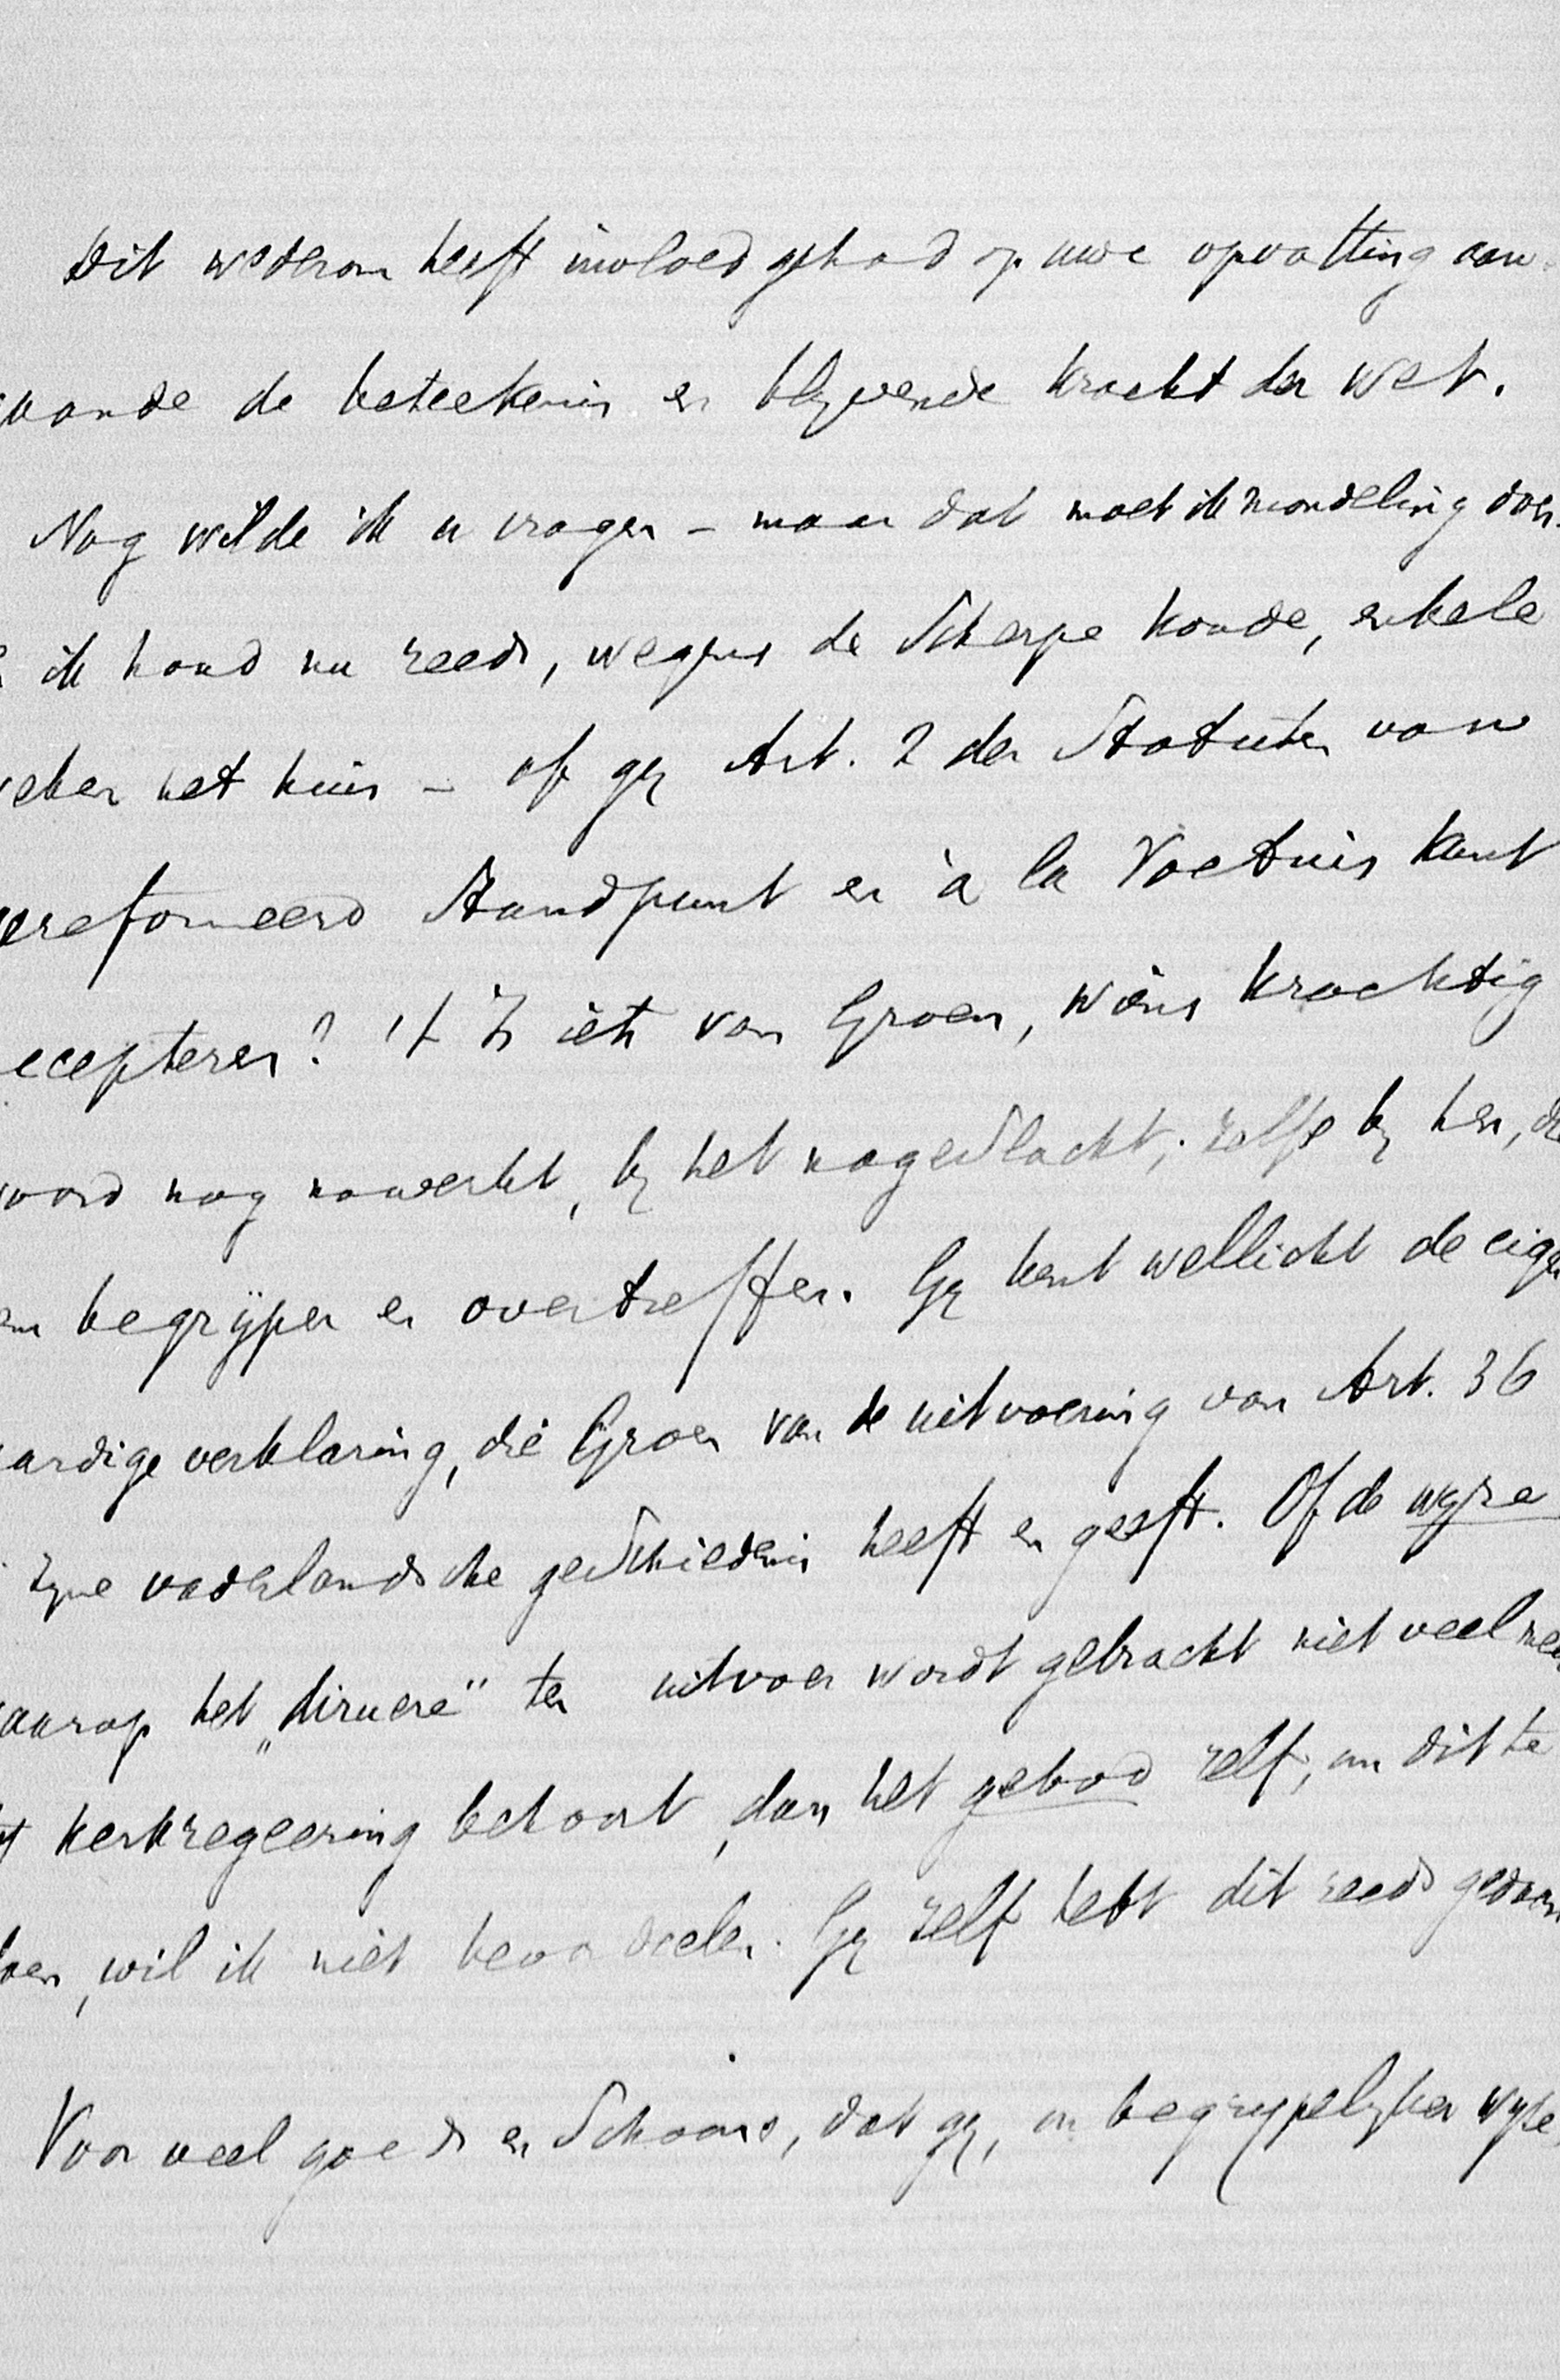 Dit wederom heeft invloed gehad op uwe opvatting aan-
gaande de beteekenis en blijvende kracht der wet.
Nog wilde ik u vragen – maar dat moet ik mondeling doen.
ik houd nu reeds, wegens de scherpe koude, enkele
weken het huis – of gij Art. 2 der Statuten van
gereformeerd standpunt en à la Voetuis kunt
accepteren? 't Is iets van Groen, wiens krachtig
woord nog nawerkt, bij het nageslacht; zelfs bij hen, die
hem begrijpen en overtreffen. Gij kent wellicht de eigen
aardige verklaring, die Groen van de uitvoering van Art. 36
zijne vaderlandsche geschiedenis heeft en geeft. Of de wijze
waarop het „diruere” ten uitvoer wordt gebracht niet veel meer
tot kerkregeering behoort, dan het gebod zelf, om dit te
doen, wil ik niet beoordeelen. Gij zelf hebt dit reeds gedaan
Voor veel goeds en schoons, dat gij, on begrijpelijker wijze,